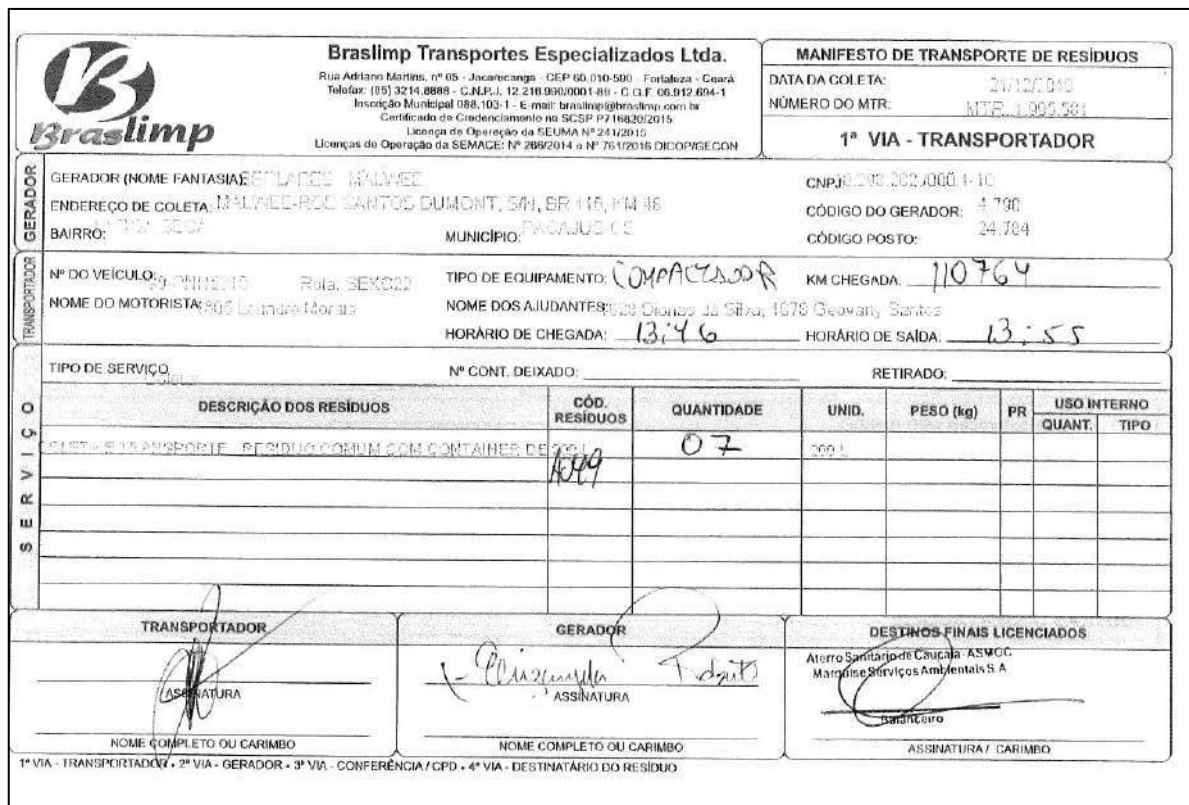 Braslimp
Braslimp Transportes Especializados Ltda.
Rua Adriano Martins, nº 05 - Jacarecanga - CEP 60.010-590 - Fortaleza - Ceará
Telefax: (85) 3214.8888 - C.N.P.J. 12.216.990/0001-89 - C.G.F. 06.912.694-1
Inscrição Municipal 088.103-1 - E-mail: braslimp@braslimp.com.br
Certificado de Credenciamento na SCSP P716820/2015
Licença de Operação da SEUMA Nº 241/2015
Licenças de Operação da SEMACE: Nº 266/2014 e Nº 761/2016 DICOP/GECON
MANIFESTO DE TRANSPORTE DE RESÍDUOS
DATA DA COLETA:
NÚMERO DO MTR: MTR
1ª VIA - TRANSPORTADOR
GERADOR
GERADOR (NOME FANTASIA): MALWEE
CNPJ:
ENDEREÇO DE COLETA: MALWEE-ROD SANTOS DUMONT, S/N, BR 116, KM 48
CÓDIGO DO GERADOR: 4.790
BAIRRO:
MUNICÍPIO: PACAJUS-CE
CÓDIGO POSTO: 24.784
TRANSPORTADOR
Nº DO VEÍCULO: Rota: SEXC22
TIPO DE EQUIPAMENTO: COMPACTADOR
KM CHEGADA: 110764
NOME DO MOTORISTA: Leandro Morais
NOME DOS AJUDANTES: da Silva, 1678 Geovany Santos
HORÁRIO DE CHEGADA: 13:46
HORÁRIO DE SAÍDA: 13:55
SERVIÇO
TIPO DE SERVIÇO
Nº CONT. DEIXADO:
RETIRADO:
DESCRIÇÃO DOS RESÍDUOS CÓD. RESÍDUOS QUANTIDADE UNID. PESO (kg) PR USO INTERNO QUANT. TIPO
E TRANSPORTE - RESIDUO COMUM COM CONTAINER DE 07
A099
TRANSPORTADOR
ASSINATURA
NOME COMPLETO OU CARIMBO
GERADOR
ASSINATURA
NOME COMPLETO OU CARIMBO
DESTINOS FINAIS LICENCIADOS
Aterro Sanitário de Caucaia - ASMOC
Marquise Serviços Ambientais S.A
Balanceiro
ASSINATURA / CARIMBO
1ª VIA - TRANSPORTADOR • 2ª VIA - GERADOR • 3ª VIA - CONFERÊNCIA / CPD • 4ª VIA - DESTINATÁRIO DO RESÍDUO